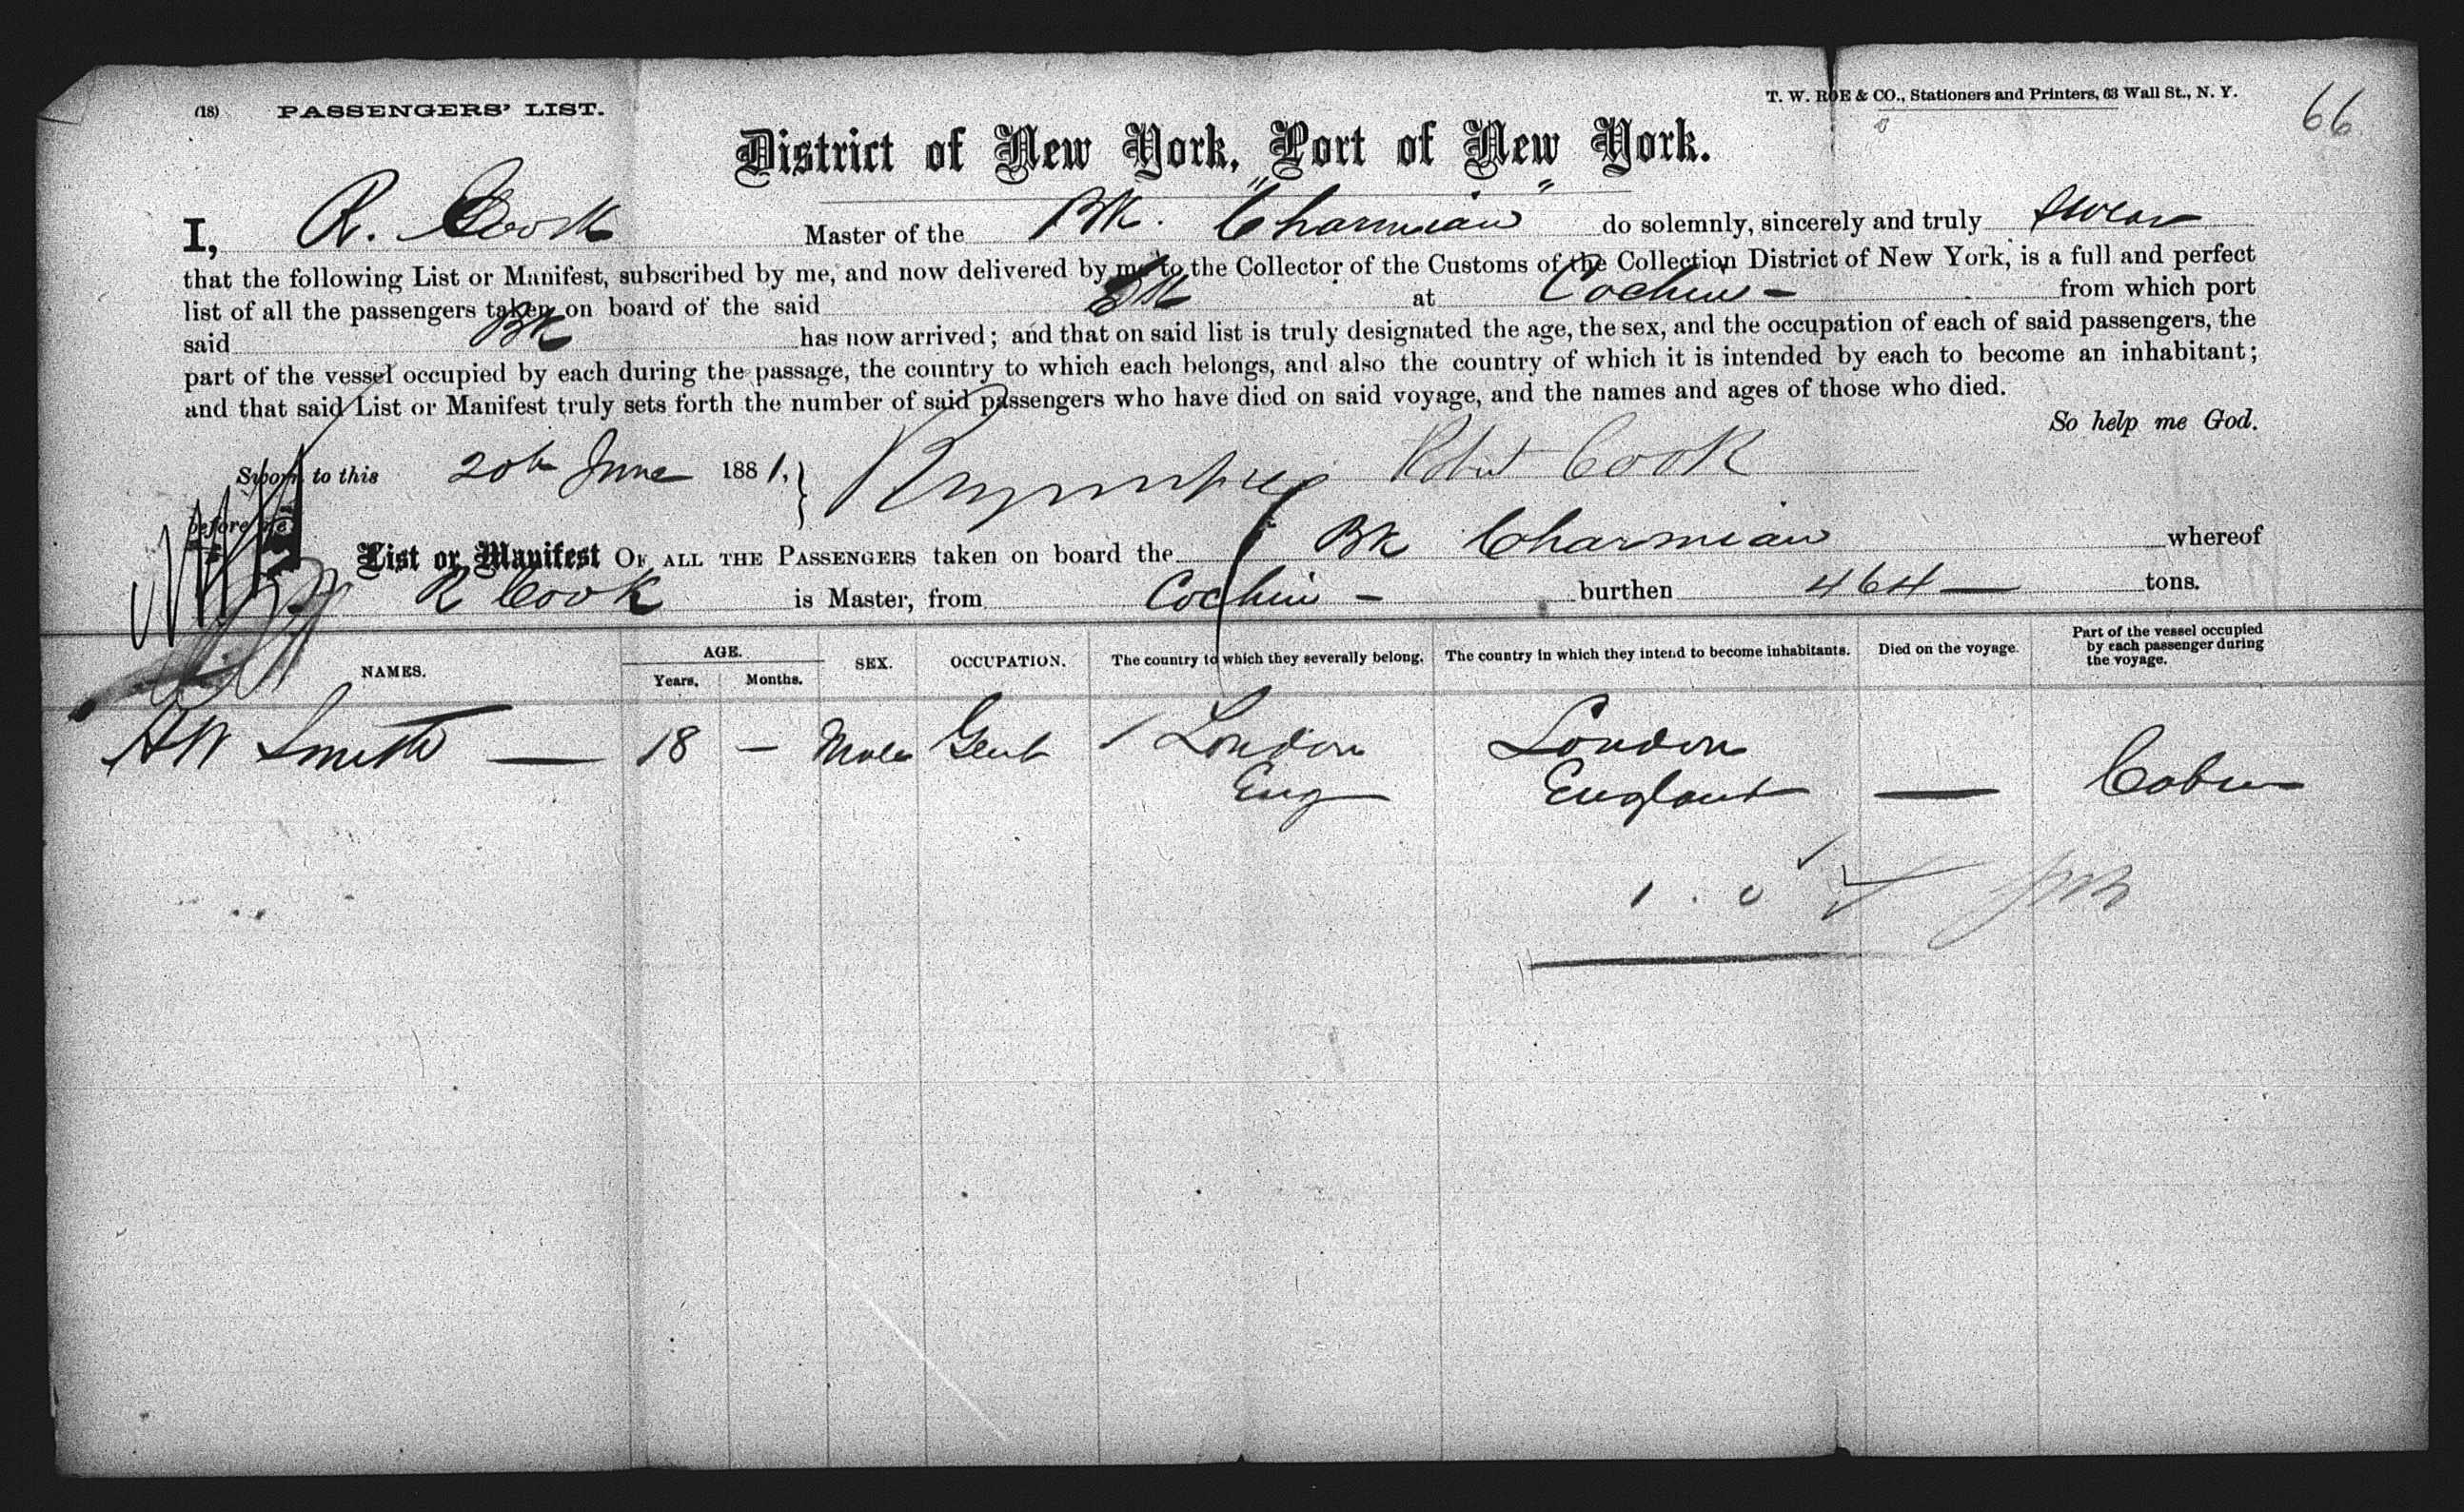 (18) PASSENGERS' LIST.
T. W. ROE & CO., Stationers and Printers, 63 Wall St., N. Y.
66
District of New York, Port of New York.
I, R. Cook Master of the Bk. "Charmian" do solemnly, sincerely and truly swear
that the following List or Manifest, subscribed by me, and now delivered by me to the Collector of the Customs of the Collection District of New York, is a full and perfect
list of all the passengers taken on board of the said Bk at Cochin - from which port
said Bk has now arrived; and that on said list is truly designated the age, the sex, and the occupation of each of said passengers, the
part of the vessel occupied by each during the passage, the country to which each belongs, and also the country of which it is intended by each to become an inhabitant;
and that said List or Manifest truly sets forth the number of said passengers who have died on said voyage, and the names and ages of those who died.
So help me God.
Sworn to this 20th June 1881, } Robert Cook
before me
List or Manifest OF ALL THE PASSENGERS taken on board the Bk Charmian whereof
R Cook is Master, from Cochin - burthen 464 — tons.
NAMES. AGE. Years. Months. SEX. OCCUPATION. The country to which they severally belong. The country in which they intend to become inhabitants. Died on the voyage. Part of the vessel occupied by each passenger during the voyage.
HW Smith — 18 - Male Gent / London London
Eng England — Cabin